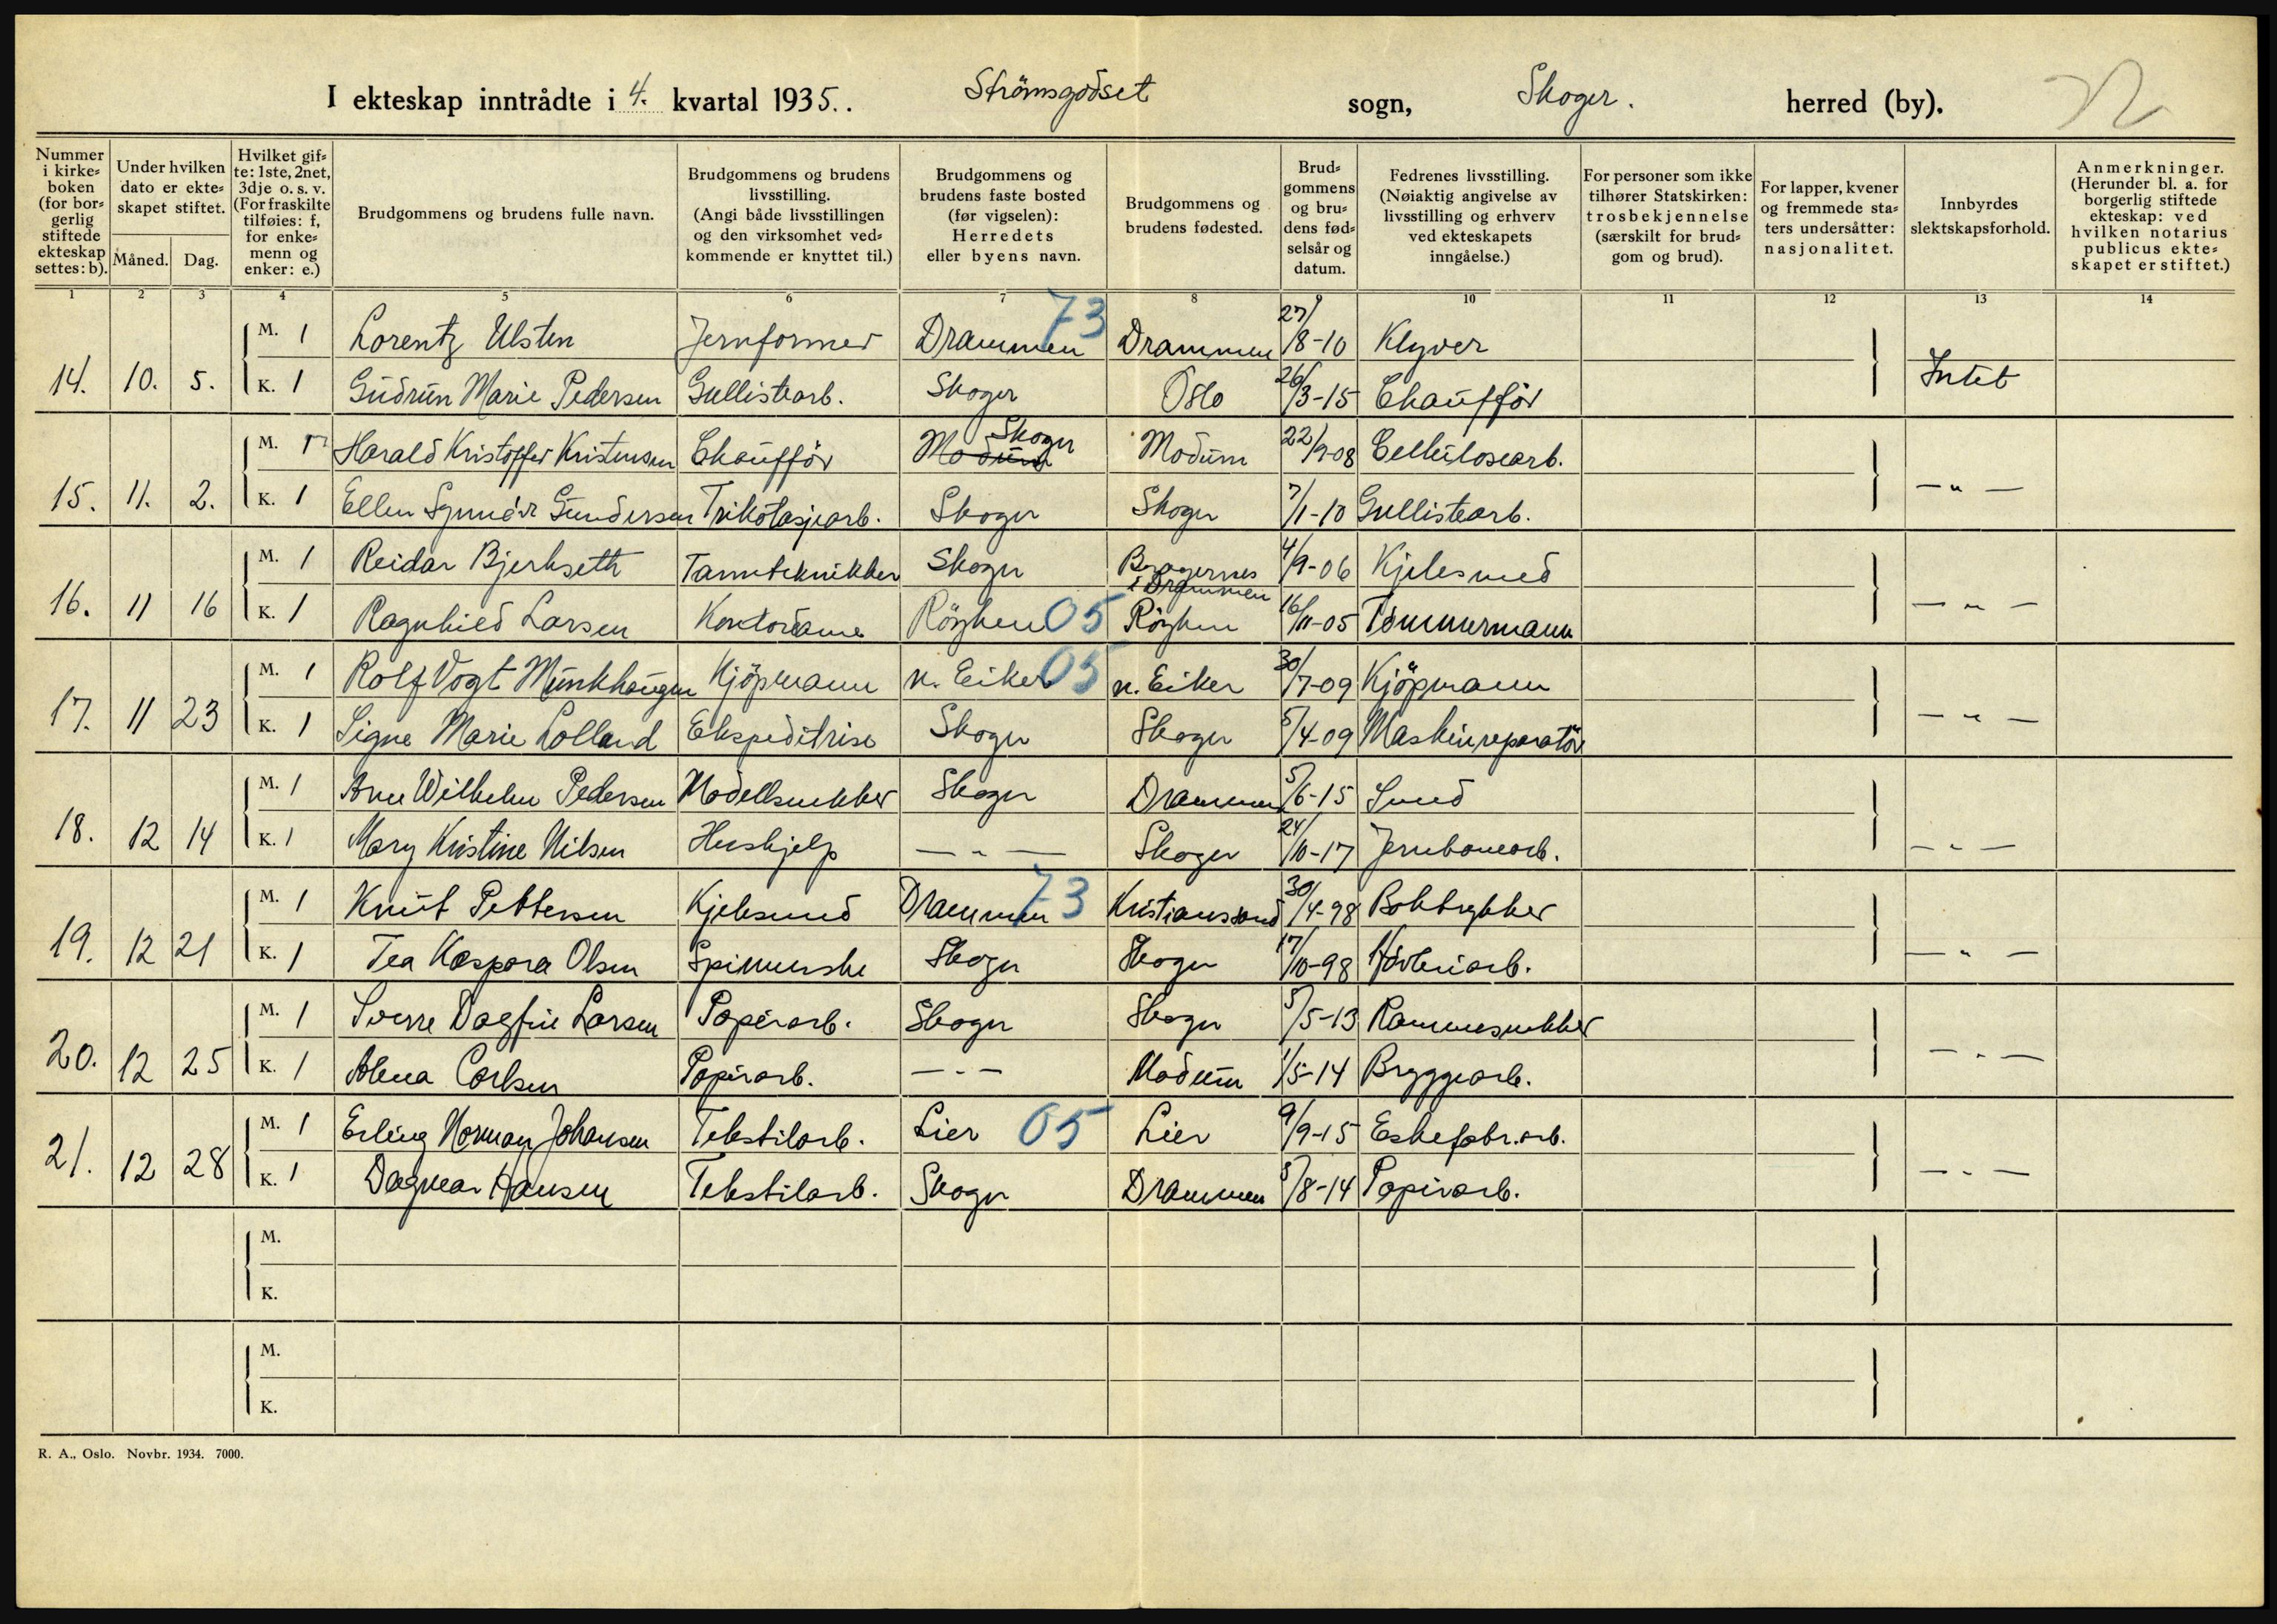 I ekteskap inntrådte i 4. kvartal 1935. Strömsgodset sogn, Skoger. herred (by).
Nummer i kirke=boken (for bor=gerlig stiftede ekteskap settes: b).
Under hvilken dato er ekte=skapet stiftet.
Måned. Dag.
Hvilket gif=te: 1ste, 2net, 3dje o. s. v. (For fraskilte tilføies: f, for enke=menn og enker: e.)
Brudgommens og brudens fulle navn.
Brudgommens og brudens livsstilling. (Angi både livsstillingen og den virksomhet ved=kommende er knyttet til.)
Brudgommens og brudens faste bosted (før vigselen): Herredets eller byens navn.
Brudgommens og brudens fødested.
Brud=gommens og bru=dens fød=selsår og datum.
Fedrenes livsstilling. (Nøiaktig angivelse av livsstilling og erhverv ved ekteskapets inngåelse.)
For personer som ikke tilhører Statskirken: trosbekjennelse (særskilt for brud=gom og brud).
For lapper, kvener og fremmede sta=ters undersåtter: nasjonalitet.
Innbyrdes slektskapsforhold.
Anmerkninger. (Herunder bl. a. for borgerlig stiftede ekteskap: ved hvilken notarius publicus ekte=skapet er stiftet.)
1 2 3 4 5 6 7 8 9 10 11 12 13 14
M. 1 Lorentz Ulsten Jernformer Drammen 73 Drammen 27/8-10 Klyver
14. 10. 5. K. 1 Gudrun Marie Pedersen Gullistearb. Skoger Oslo 26/3-15 Chaufför Intet
M. 1 Harald Kristoffer Kristensen Chaufför Modum Skoger Modum 22/9-08 Cellulosearb.
15. 11. 2. K. 1 Ellen Synnöve Gundersen Trikotasjearb. Skoger Skoger 7/1-10 Gullistearb. — " —
M. 1 Reidar Bjerkseth Tannteknikker Skoger Bragernes i Drammen 4/9-06 Kjelesmed
16. 11 16 K. 1 Ragnhild Larsen Kontordame Röyken 05 Röyken 16/11-05 Tömmermann — " —
M. 1 Rolf Vogt Munkhaugen Kjöpmann n. Eiker 05 n. Eiker 30/7-09 Kjöpmann
17. 11 23 K. 1 Signe Marie Lolland Ekspeditrise Skoger Skoger 5/4-09 Maskinreparatör — " —
M. 1 Arne Wilhelm Pedersen Modellsnekker Skoger Drammen 5/6-15 Smed
18. 12 14 K. 1 Mary Kristine Nilsen Hushjelp — " — Skoger 24/10-17 Jernbanearb. — " —
M. 1 Knut Pettersen Kjelesmed Drammen 73 Kristianssand 30/4-98 Boktrykker
19. 12 21 K. 1 Tea Kaspara Olsen Spinnerske Skoger Skoger 17/10-98 Hövleriarb. — " —
M. 1 Sverre Dagfin Larsen Papirarb. Skoger Skoger 5/5-13 Rammesnekker
20. 12 25 K. 1 Carlsen Papirarb. — " — Modum 1/5-14 Bryggearb. — " —
M. 1 Erling Norman Johansen Tekstilarb. Lier 05 Lier 9/9-15 Eskefabr.arb.
21. 12 28 K. 1 Dagmar Hansen Tekstilarb. Skoger Drammen 5/8-14 Papirarb. — " —
M.
K.
M.
K.
R. A., Oslo. Novbr. 1934. 7000.